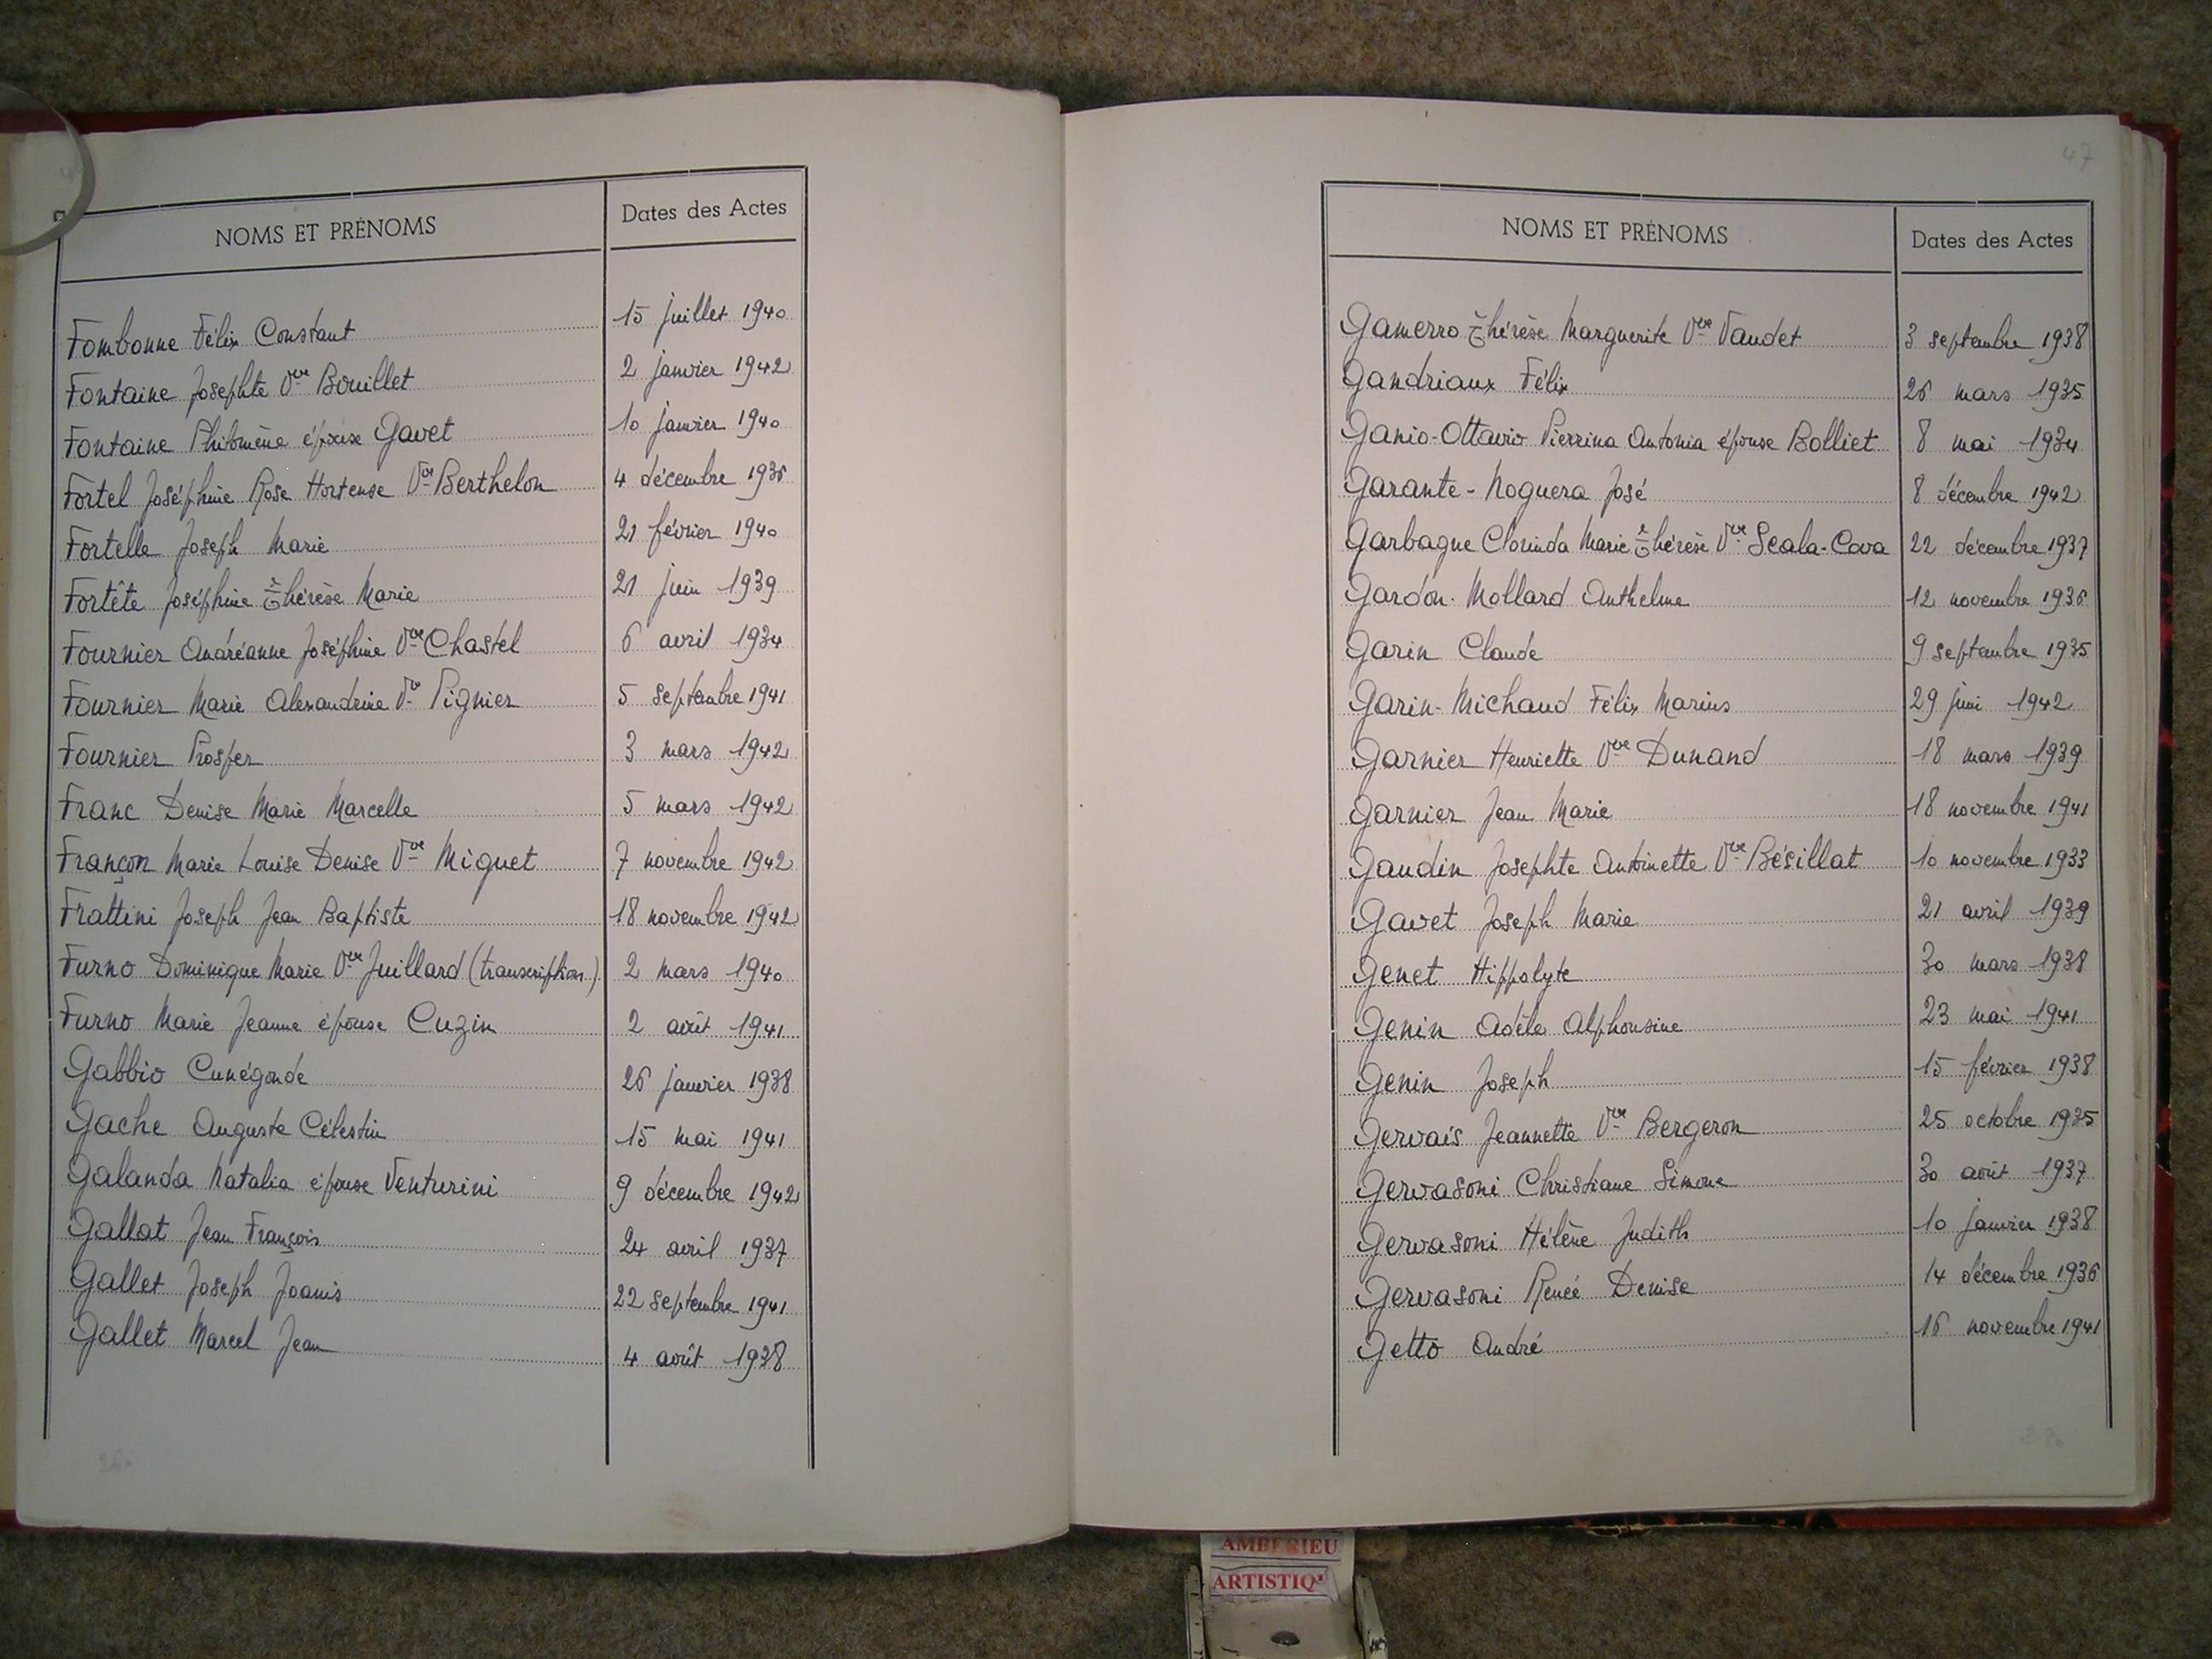 NOMS ET PRÉNOMS Dates des Actes
Fombonne Félix Constant 15 juillet 1940
Fontaine Josephte Vve Bouillet 2 janvier 1942
Fontaine Philomène épouse Gavet 10 janvier 1940
Fortel Joséphine Rose Hortense Vve Berthelon 4 décembre 1936
Fortelle Joseph Marie 21 février 1940
Fortête Joséphine Thérèse Marie 21 juin 1939
Fournier Andréanne Joséphine Vve Chastel 6 avril 1934
Fournier Marie Alexandrine Vve Pignier 5 septembre 1941
Fournier Prosper 3 mars 1942
Franc Denise Marie Marcelle 5 mars 1942
Françon Marie Louise Denise Vve Miguet 7 novembre 1942
Frattini Joseph Jean Baptiste 18 novembre 1942
Furno Dominique Marie Vve Juillard (transcription) 2 mars 1940
Furno Marie Jeanne épouse Cuzin 2 août 1941
Gabbio Cunégonde 26 janvier 1938
Gache Auguste Célestin 15 mai 1941
Galanda Natalia épouse Venturini 9 décembre 1942
Gallat Jean François 24 avril 1937
Gallet Joseph Joanis 22 septembre 1941
Gallet Marcel Jean 4 août 1938
47
NOMS ET PRÉNOMS Dates des Actes
Gamerro Thérèse Marguerite Vve Vaudet 3 septembre 1938
Gandriaux Félix 26 mars 1935
Ganio-Ottavio Pierrina Antonia épouse Bolliet 8 mai 1934
Garante-Noguera José 8 décembre 1942
Garbagne Clorinda Marie Thérèse Vve Scala-Cova 22 décembre 1937
Gardon-Mollard Anthelme 12 novembre 1936
Garin Claude 9 septembre 1935
Garin-Michaud Félix Marius 29 juin 1942
Garnier Henriette Vve Dunand 18 mars 1939
Garnier Jean Marie 18 novembre 1941
Gaudin Josephte Antoinette Vve Bésillat 10 novembre 1933
Gavet Joseph Marie 21 avril 1939
Genet Hippolyte 30 mars 1938
Genin Adèle Alphonsine 23 mai 1941
Genin Joseph 15 février 1938
Gervais Jeannette Vve Bergeron 25 octobre 1935
Gervasoni Christiane Simone 30 août 1937
Gervasoni Hélène Judith 10 janvier 1938
Gervasoni Renée Denise 14 décembre 1936
Getto André 16 novembre 1941
AMBERIEU
ARTISTIQ